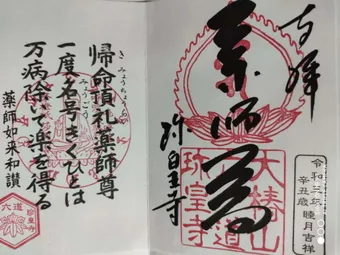 奉拝
薬師尊
珍皇寺
令和三年
辛丑歳 睦月吉祥
大椿山
六道
珍皇寺
きみょうちょうらい
帰命頂礼薬師尊
みょうごう
一度名号きくひとは
万病除いて楽を得る
薬師如来和讃
六道
珍皇寺